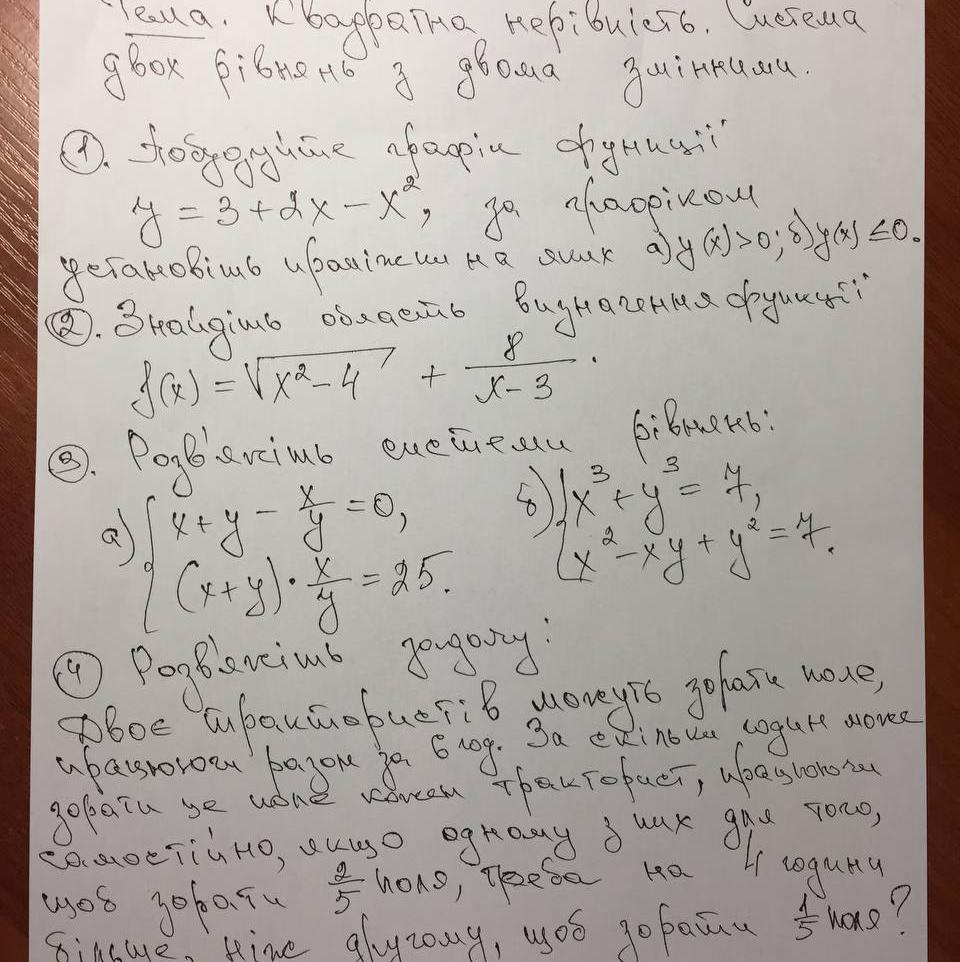 Тема. Квадратна нерівність. Система
двох рівнянь з двома змінними.
①. Побудуйте графік функції
y = 3 + 2x − x², за графіком
установіть проміжки на яких а) y(x) > 0; б) y(x) ≤ 0.
②. Знайдіть область визначення функції
f(x) = √(x² − 4) + 8/(x − 3).
③. Розв'яжіть системи рівнянь:
а) { x + y − x/y = 0, б) { x³ + y³ = 7,
(x + y) · x/y = 25. x² − xy + y² = 7.
④ Розв'яжіть задачу:
Двоє трактористів можуть зорати поле,
працюючи разом за 6 год. За скільки годин може
зорати це поле кожен тракторист, працюючи
самостійно, якщо одному з них для того,
щоб зорати 2/5 поля, треба на 4 години
більше, ніж другому, щоб зорати 1/5 поля?